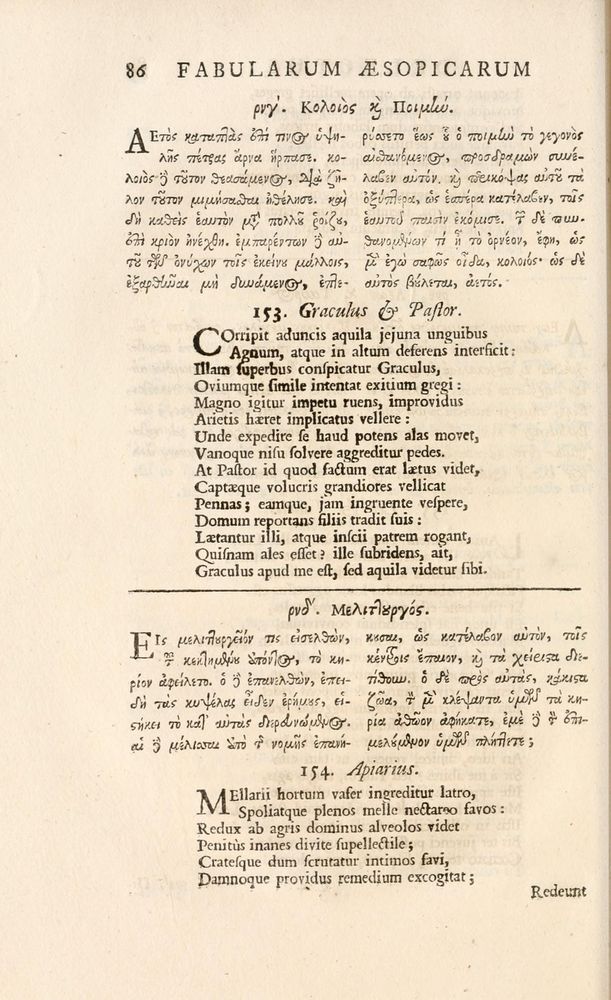 86 FABULARUM ÆSOPICARUM
ρνγʹ. Κολοιὸς καὶ Ποιμὴν.
ΑΕτὸς καταπτὰς ἀπὸ τινος ὑψη-
λῆς πέτρας ἄρνα ἥρπασε. κο-
λοιὸς δὲ τοῦτον θεασάμενος, διὰ ζῆ-
λον τοῦτον μιμήσασθαι ἠθέλησε. καὶ
δὴ καθεὶς ἑαυτὸν μετὰ πολλοῦ ῥοίζου,
ἐπὶ κριὸν ἠνέχθη. ἐμπαρέντων δὲ αὐ-
τοῦ τῶν ὀνύχων τοῖς ἐκείνου μάλλοις,
ἐξαρθῆναι μὴ δυνάμενος, ἐπτε-
ρύσσετο ἕως οὗ ὁ ποιμὴν τὸ γεγονὸς
αἰσθανόμενος, προσδραμὼν συνέ-
λαβεν αὐτόν. καὶ περικόψας αὐτοῦ τὰ
ὀξύπτερα, ὡς ἑσπέρα κατέλαβεν, τοῖς
ἑαυτοῦ παισὶν ἐκόμισε. τῶν δὲ πυν-
θανομένων τί ἦ τὸ ὀρνέον, ἔφη, ὡς
μὲν ἐγὼ σαφῶς οἶδα, κολοιός· ὡς δὲ
αὐτὸς βούλεται, ἀετός.
153. Graculus & Pastor.
COrripit aduncis aquila jejuna unguibus
Agnum, atque in altum deferens interficit:
Illam superbus conspicatur Graculus,
Oviumque simile intentat exitium gregi:
Magno igitur impetu ruens, improvidus
Arietis hæret implicatus vellere:
Unde expedire se haud potens alas movet,
Vanoque nisu solvere aggreditur pedes.
At Pastor id quod factum erat lætus videt,
Captæque volucris grandiores vellicat
Pennas; eamque, jam ingruente vespere,
Domum reportans filiis tradit suis:
Lætantur illi, atque inscii patrem rogant,
Quisnam ales esset? ille subridens, ait,
Graculus apud me est, sed aquila videtur sibi.
ρνδʹ. Μελιτουργός.
ΕΙς μελιτουργεῖόν τις εἰσελθών,
τοῦ κεκτημένου ἀπόντος, τὸ κη-
ρίον ἀφείλετο. ὁ δὲ ἐπανελθὼν, ἐπει-
δὴ τὰς κυψέλας εἶδεν ἐρήμους, εἱ-
στήκει τὸ κατ' αὐτὰς διερευνώμενος.
αἱ δὲ μέλισσαι ἀπὸ τῆς νομῆς ἐπανή-
κουσαι, ὡς κατέλαβον αὐτόν, τοῖς
κέντροις ἔπαιον, καὶ τὰ χείριστα διε-
τίθουν. ὁ δὲ πρὸς αὐτάς, κάκιστα
ζῶα, τὸν μὲν κλέψαντα ὑμῶν τὰ κη-
ρία ἀθῶον ἀφήκατε, ἐμὲ δὲ τὸν ἐπι-
μελούμενον ὑμῶν πλήττετε;
154. Apiarius.
MEllarii hortum vafer ingreditur latro,
Spoliatque plenos melle nectareo favos:
Redux ab agris dominus alveolos videt
Penitùs inanes divite supellectile;
Cratesque dum scrutatur intimos favi,
Damnoque providus remedium excogitat;
Redeunt